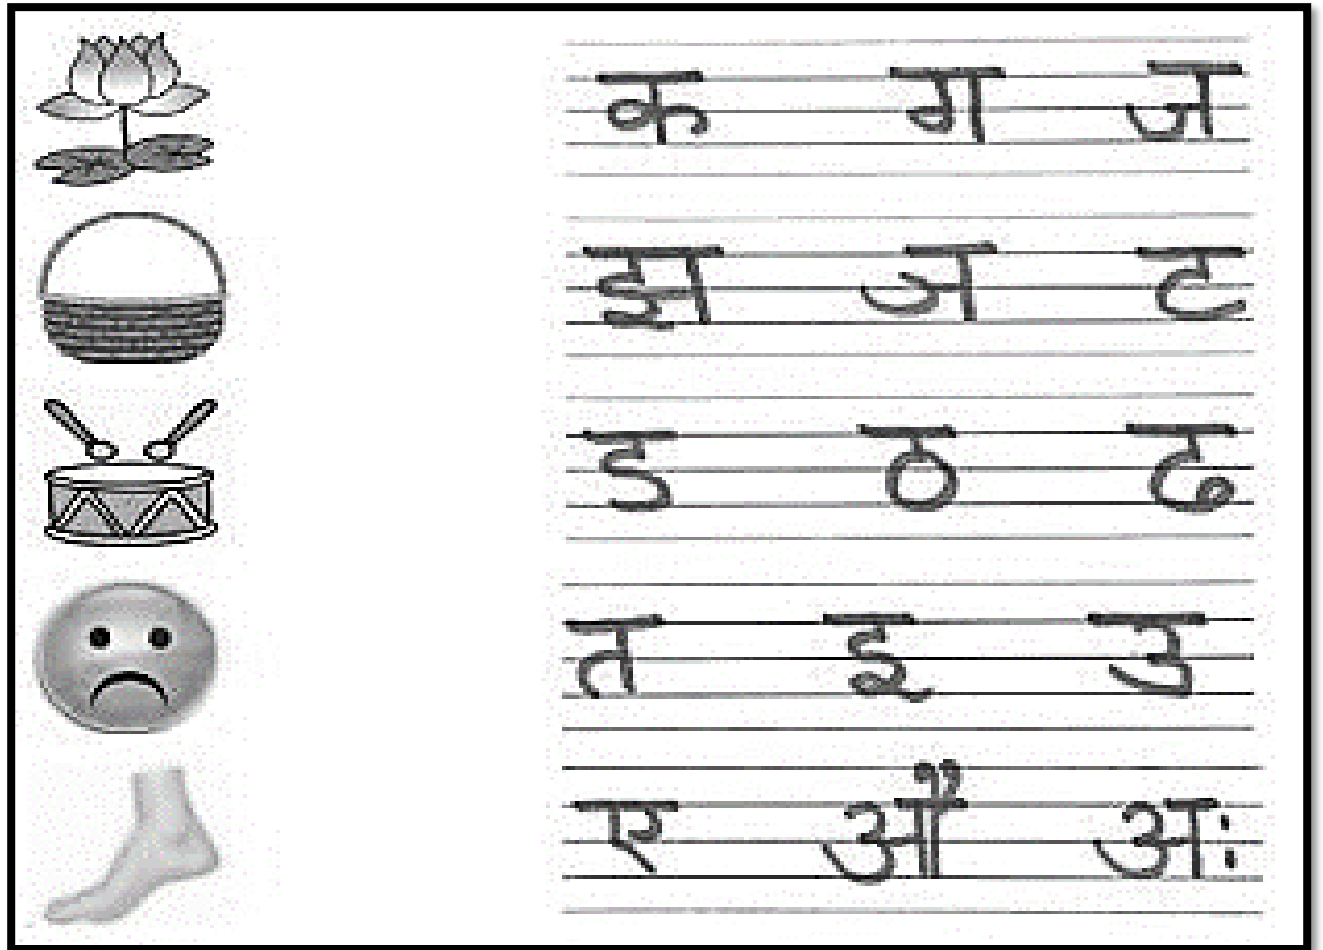 क ग ज
झ ञ ट
ड ठ ढ
त इ उ
ए औ अः